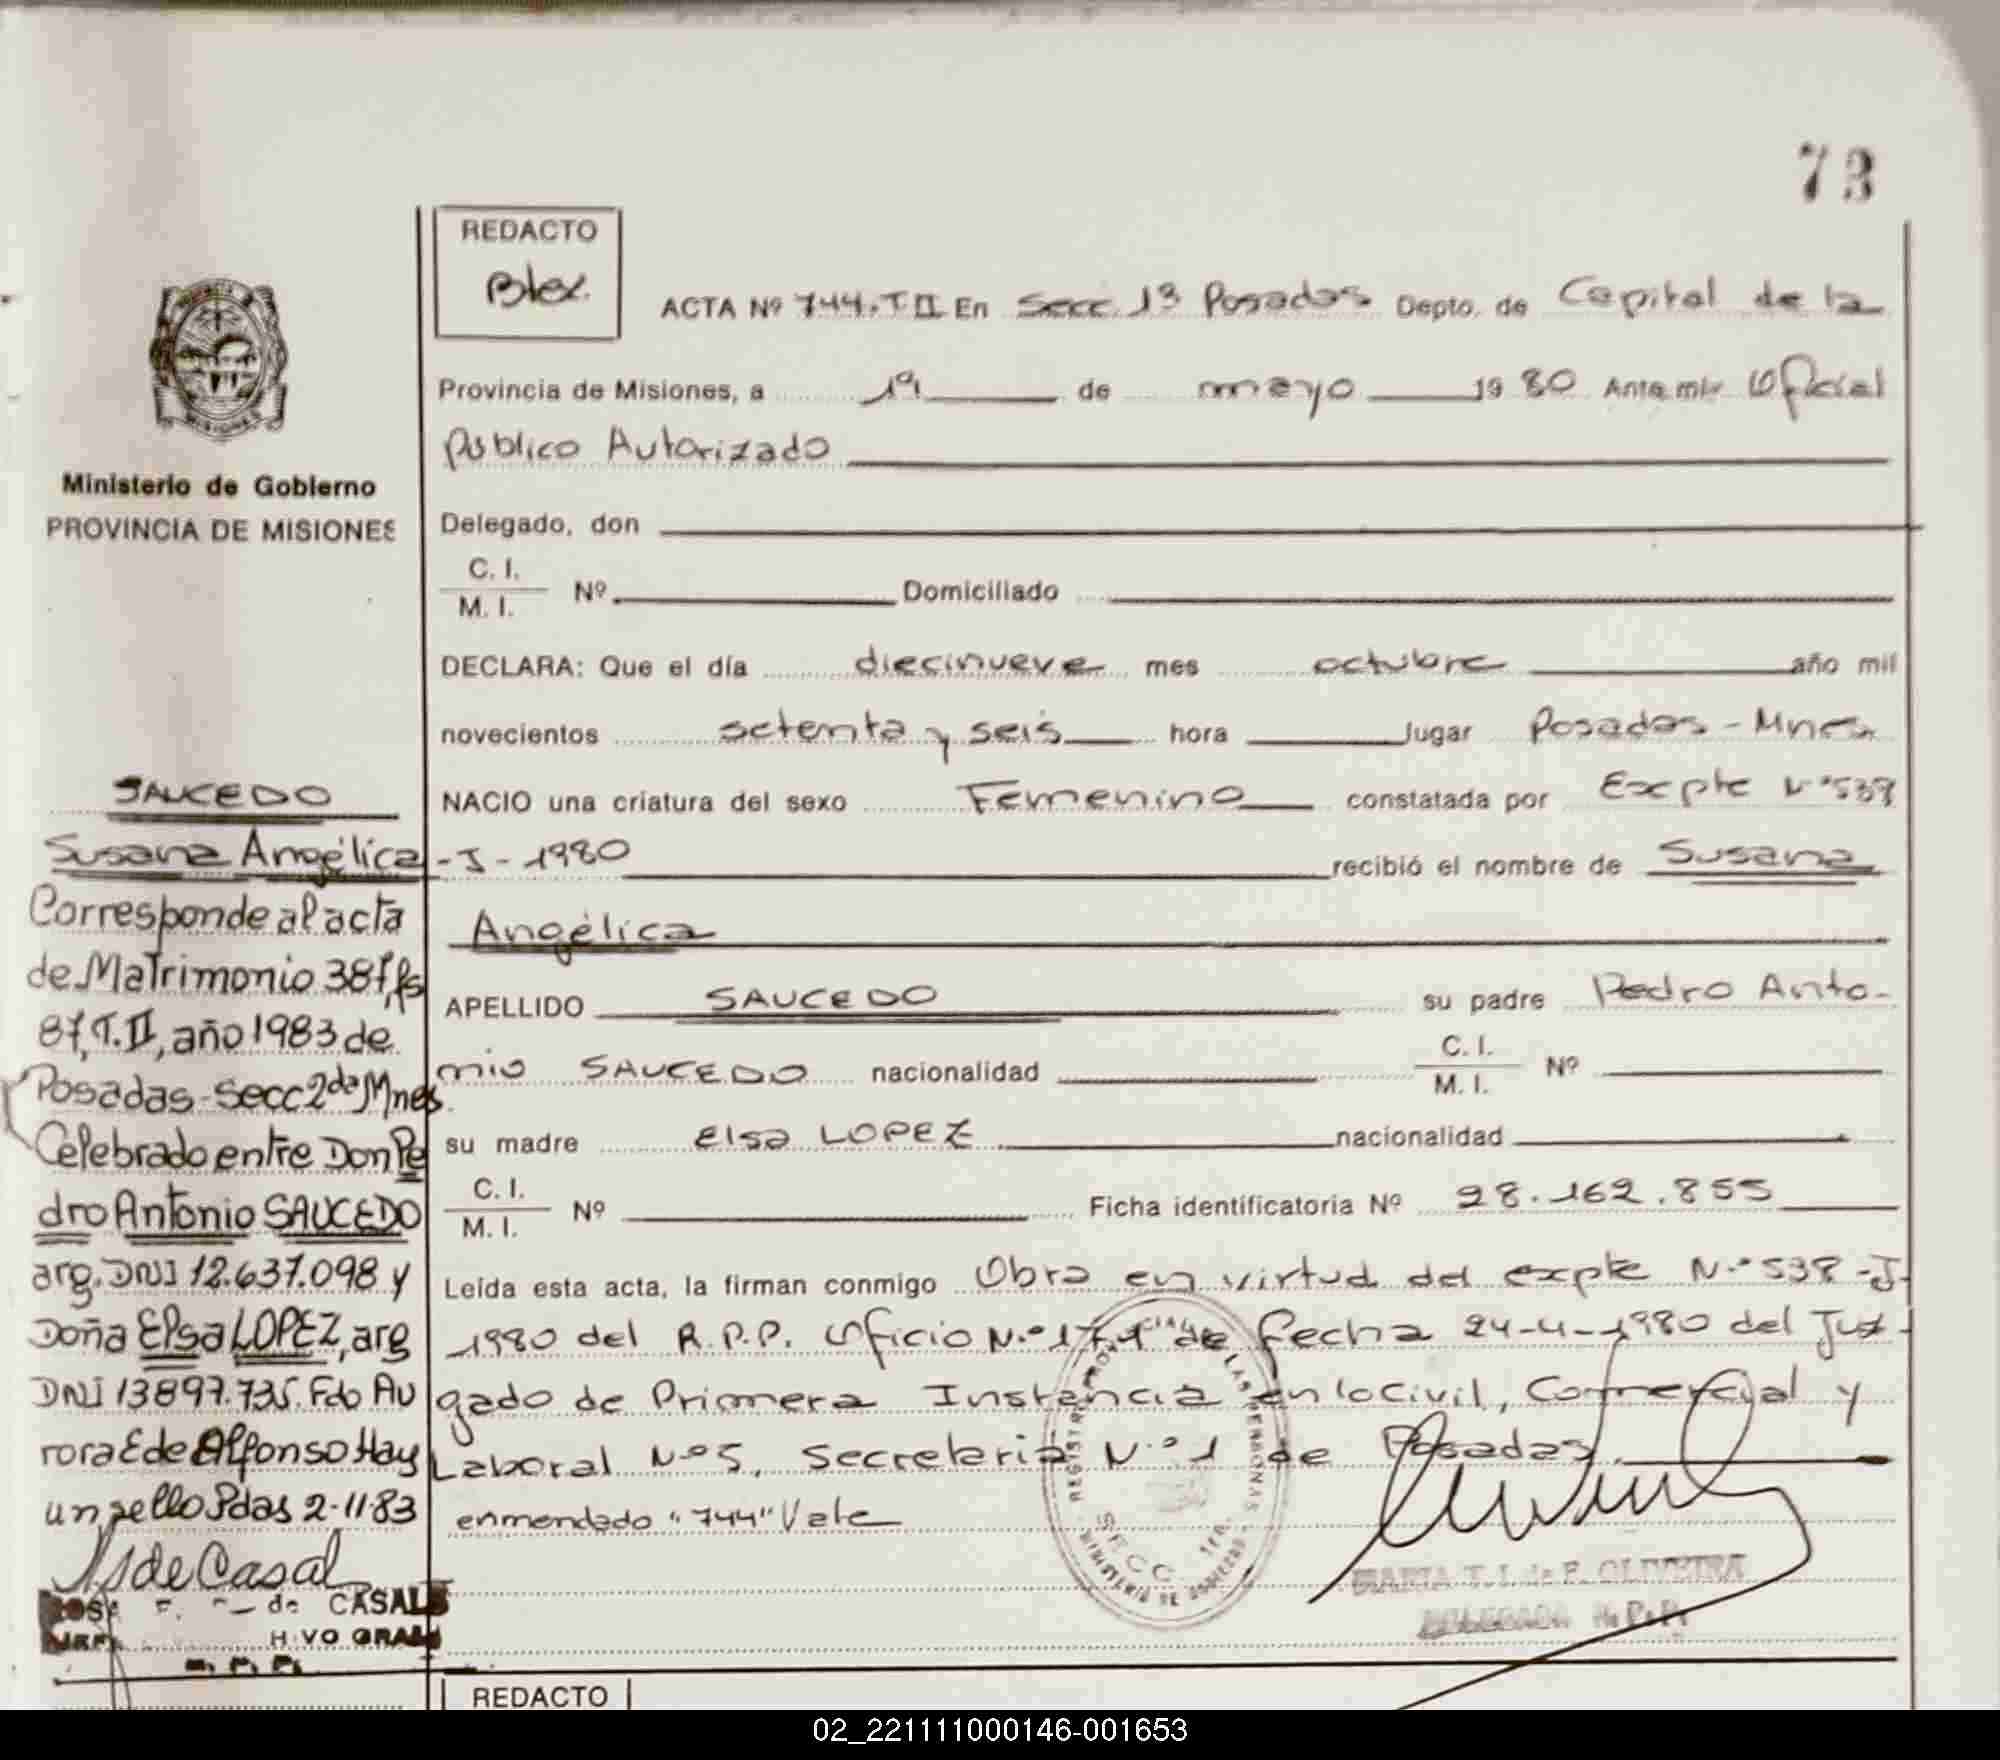 73
REDACTO
ACTA Nº 744.T II En Secc. 1ª Posadas Depto. de Capital de la
Provincia de Misiones, a 1º de mayo 1980 Ante mí: Oficial
Público Autorizado
Delegado, don
C. I.
M. I. Nº Domiciliado
DECLARA: Que el día diecinueve mes octubre año mil
novecientos setenta y seis hora lugar Posadas - Mnes
NACIO una criatura del sexo Femenino constatada por Expte Nº 538
-J-1980 recibió el nombre de Susana
Angélica
APELLIDO SAUCEDO su padre Pedro Anto-
nio SAUCEDO nacionalidad C. I.
M. I. Nº
su madre Elsa LOPEZ nacionalidad
C. I.
M. I. Nº Ficha identificatoria Nº 28.162.855
Leída esta acta, la firman conmigo Obra en virtud del expte Nº 538-J-
1980 del R.P.P. Oficio Nº de fecha 24-4-1980 del Juz-
gado de Primera Instancia en lo Civil, Comercial y
Laboral Nº 5, Secretaria Nº 1 de Posadas.
enmendado "744" Vale
MARIA T. J. de F. OLIVEIRA
DELEGADA R.P.P.
REGISTRO PROVINCIAL DE LAS PERSONAS
SECC. 1RA.
MINISTERIO DE GOBIERNO
Ministerio de Gobierno
PROVINCIA DE MISIONES
SAUCEDO
Susana Angélica
Corresponde al acta
de Matrimonio 387, fs
87, T.II, año 1983 de
Posadas-Secc 2da Mnes.
Celebrado entre Don Pe
dro Antonio SAUCEDO
arg. DNI 12.637.098 y
Doña Elsa LOPEZ, arg
DNI 13897.735. Fdo Au
rora E de Alfonso Hay
un sello Pdas 2-11-83
de Casal
de CASALS
REDACTO
02_221111000146-001653